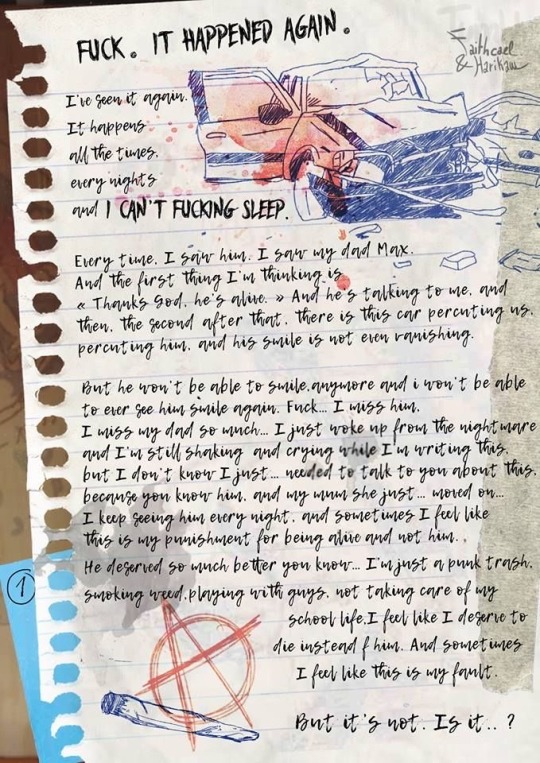 FUCK. IT HAPPENED AGAIN.
Faithcael
& Harikau
I've seen it again.
It happens
all the times.
every nights
and I CAN'T FUCKING SLEEP.
Every time, I saw him. I saw my dad Max.
And the first thing I'm thinking is
« Thanks God, he's alive. » And he's talking to me, and
then, the second after that, there is this car percuting us,
percuting him, and his smile is not even vanishing.
But he won't be able to smile anymore and i won't be able
to ever see him smile again. Fuck... I miss him.
I miss my dad so much... I just woke up from the nightmare
and I'm still shaking and crying while I'm writing this,
but I don't know I just... needed to talk to you about this,
because you know him, and my mum she just... moved on...
I keep seeing him every night, and sometimes I feel like
this is my punishment for being alive and not him..
He deserved so much better you know... I'm just a punk trash,
smoking weed,playing with guys, not taking care of my
school life,I feel like I deserve to
die instead f him. And sometimes
I feel like this is my fault.
But it's not. Is it.. ?
1